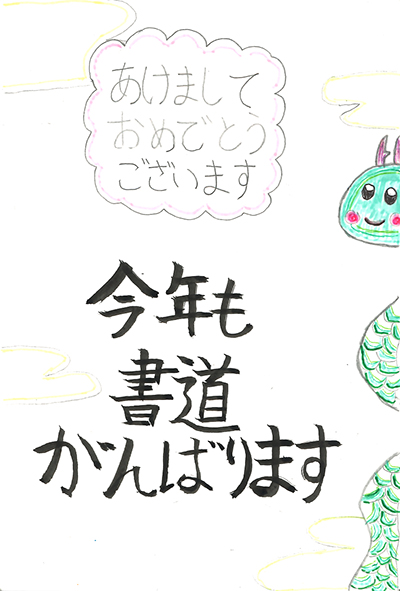 あけまして
おめでとう
ございます
今年も
書道
がんばります